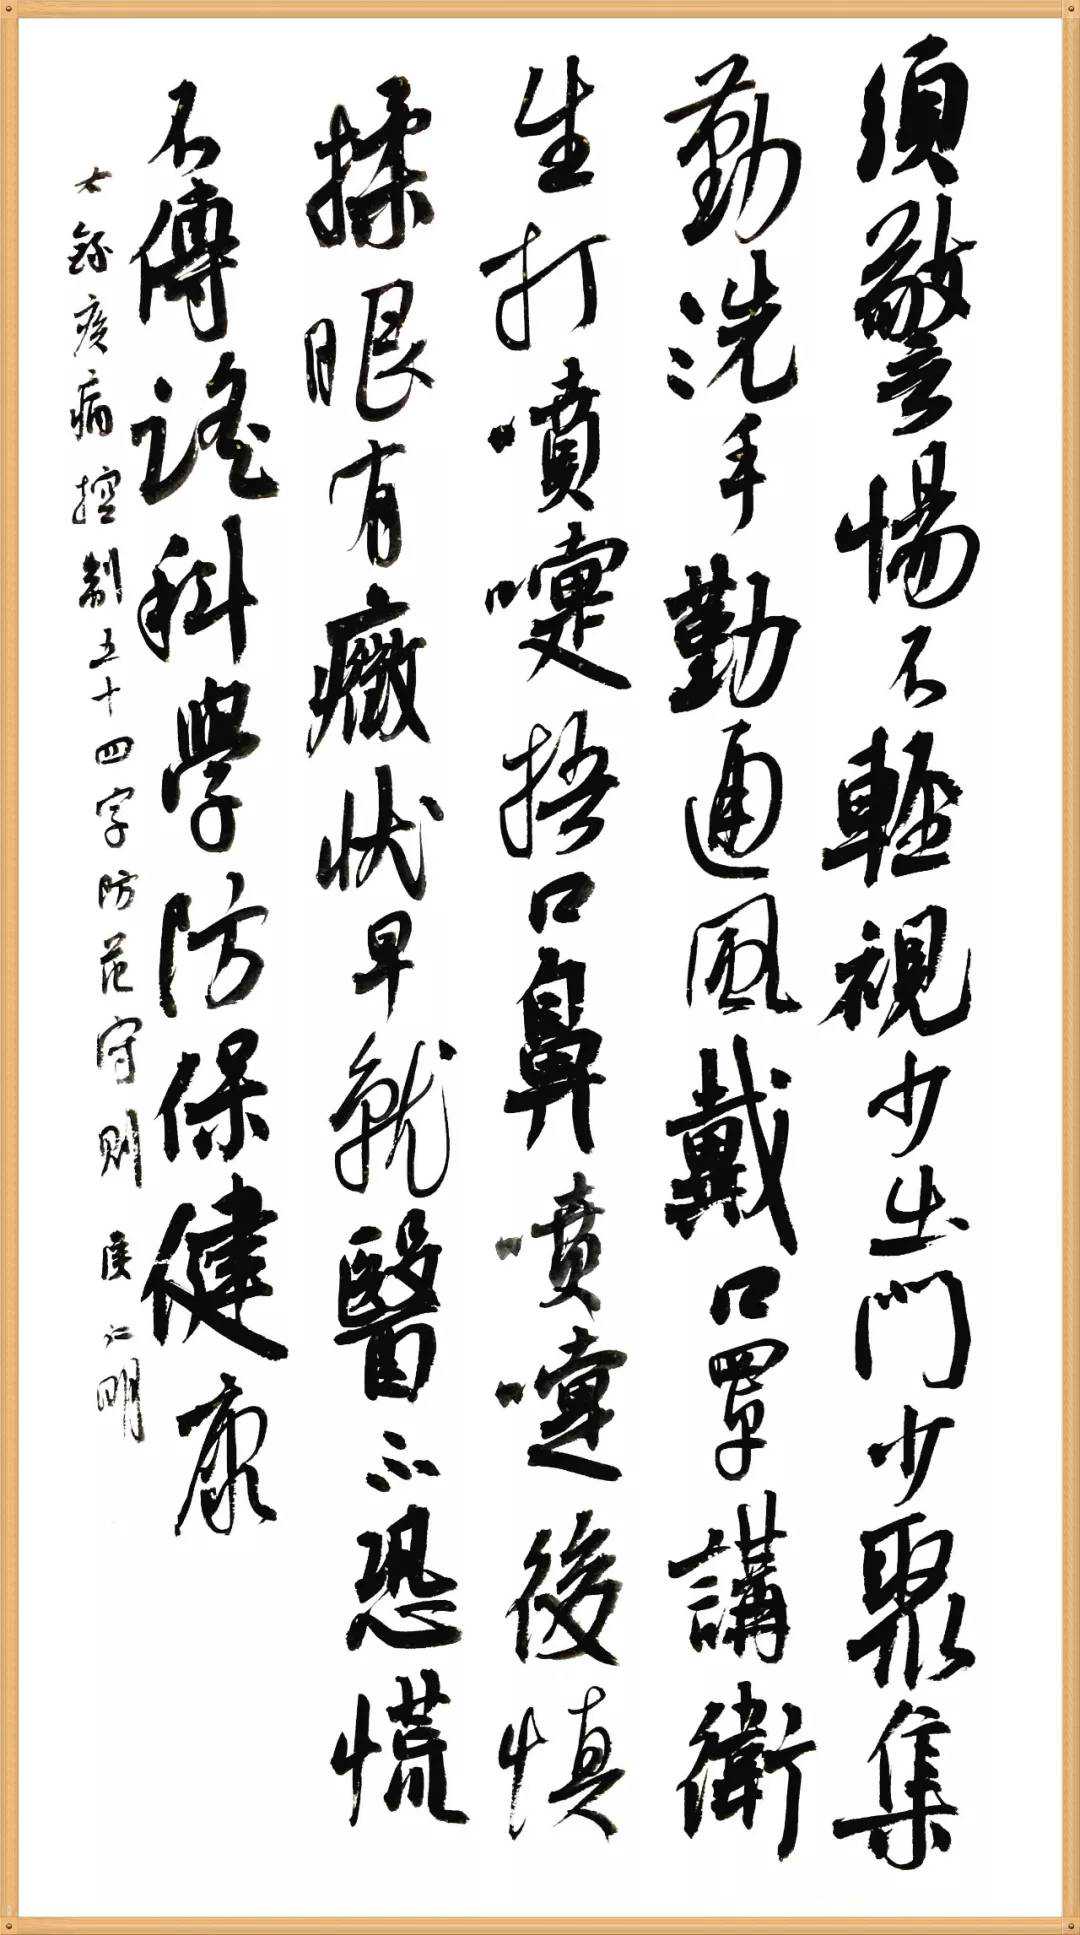 須警惕不輕視少出門少聚集
勤洗手勤通風戴口罩講衛
生打噴嚏捂口鼻噴嚏後慎
揉眼有癥狀早就醫不恐慌
不傳謠科學防保健康
右錄疾病控制五十四字防范守則 侯仁明